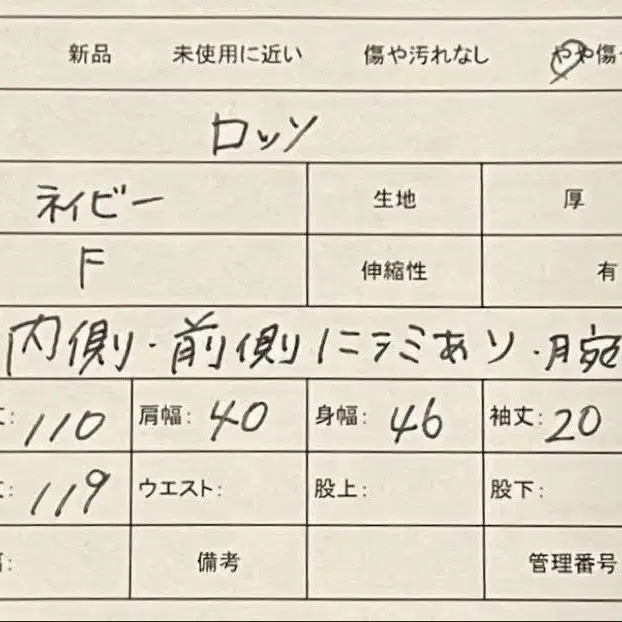 新品 未使用に近い 傷や汚れなし やや傷
ロッソ
ネイビー 生地 厚
F 伸縮性 有
内側・前側にシミあり・腕
丈: 110 肩幅: 40 身幅: 46 袖丈: 20
丈: 119 ウエスト: 股上: 股下:
備考 管理番号